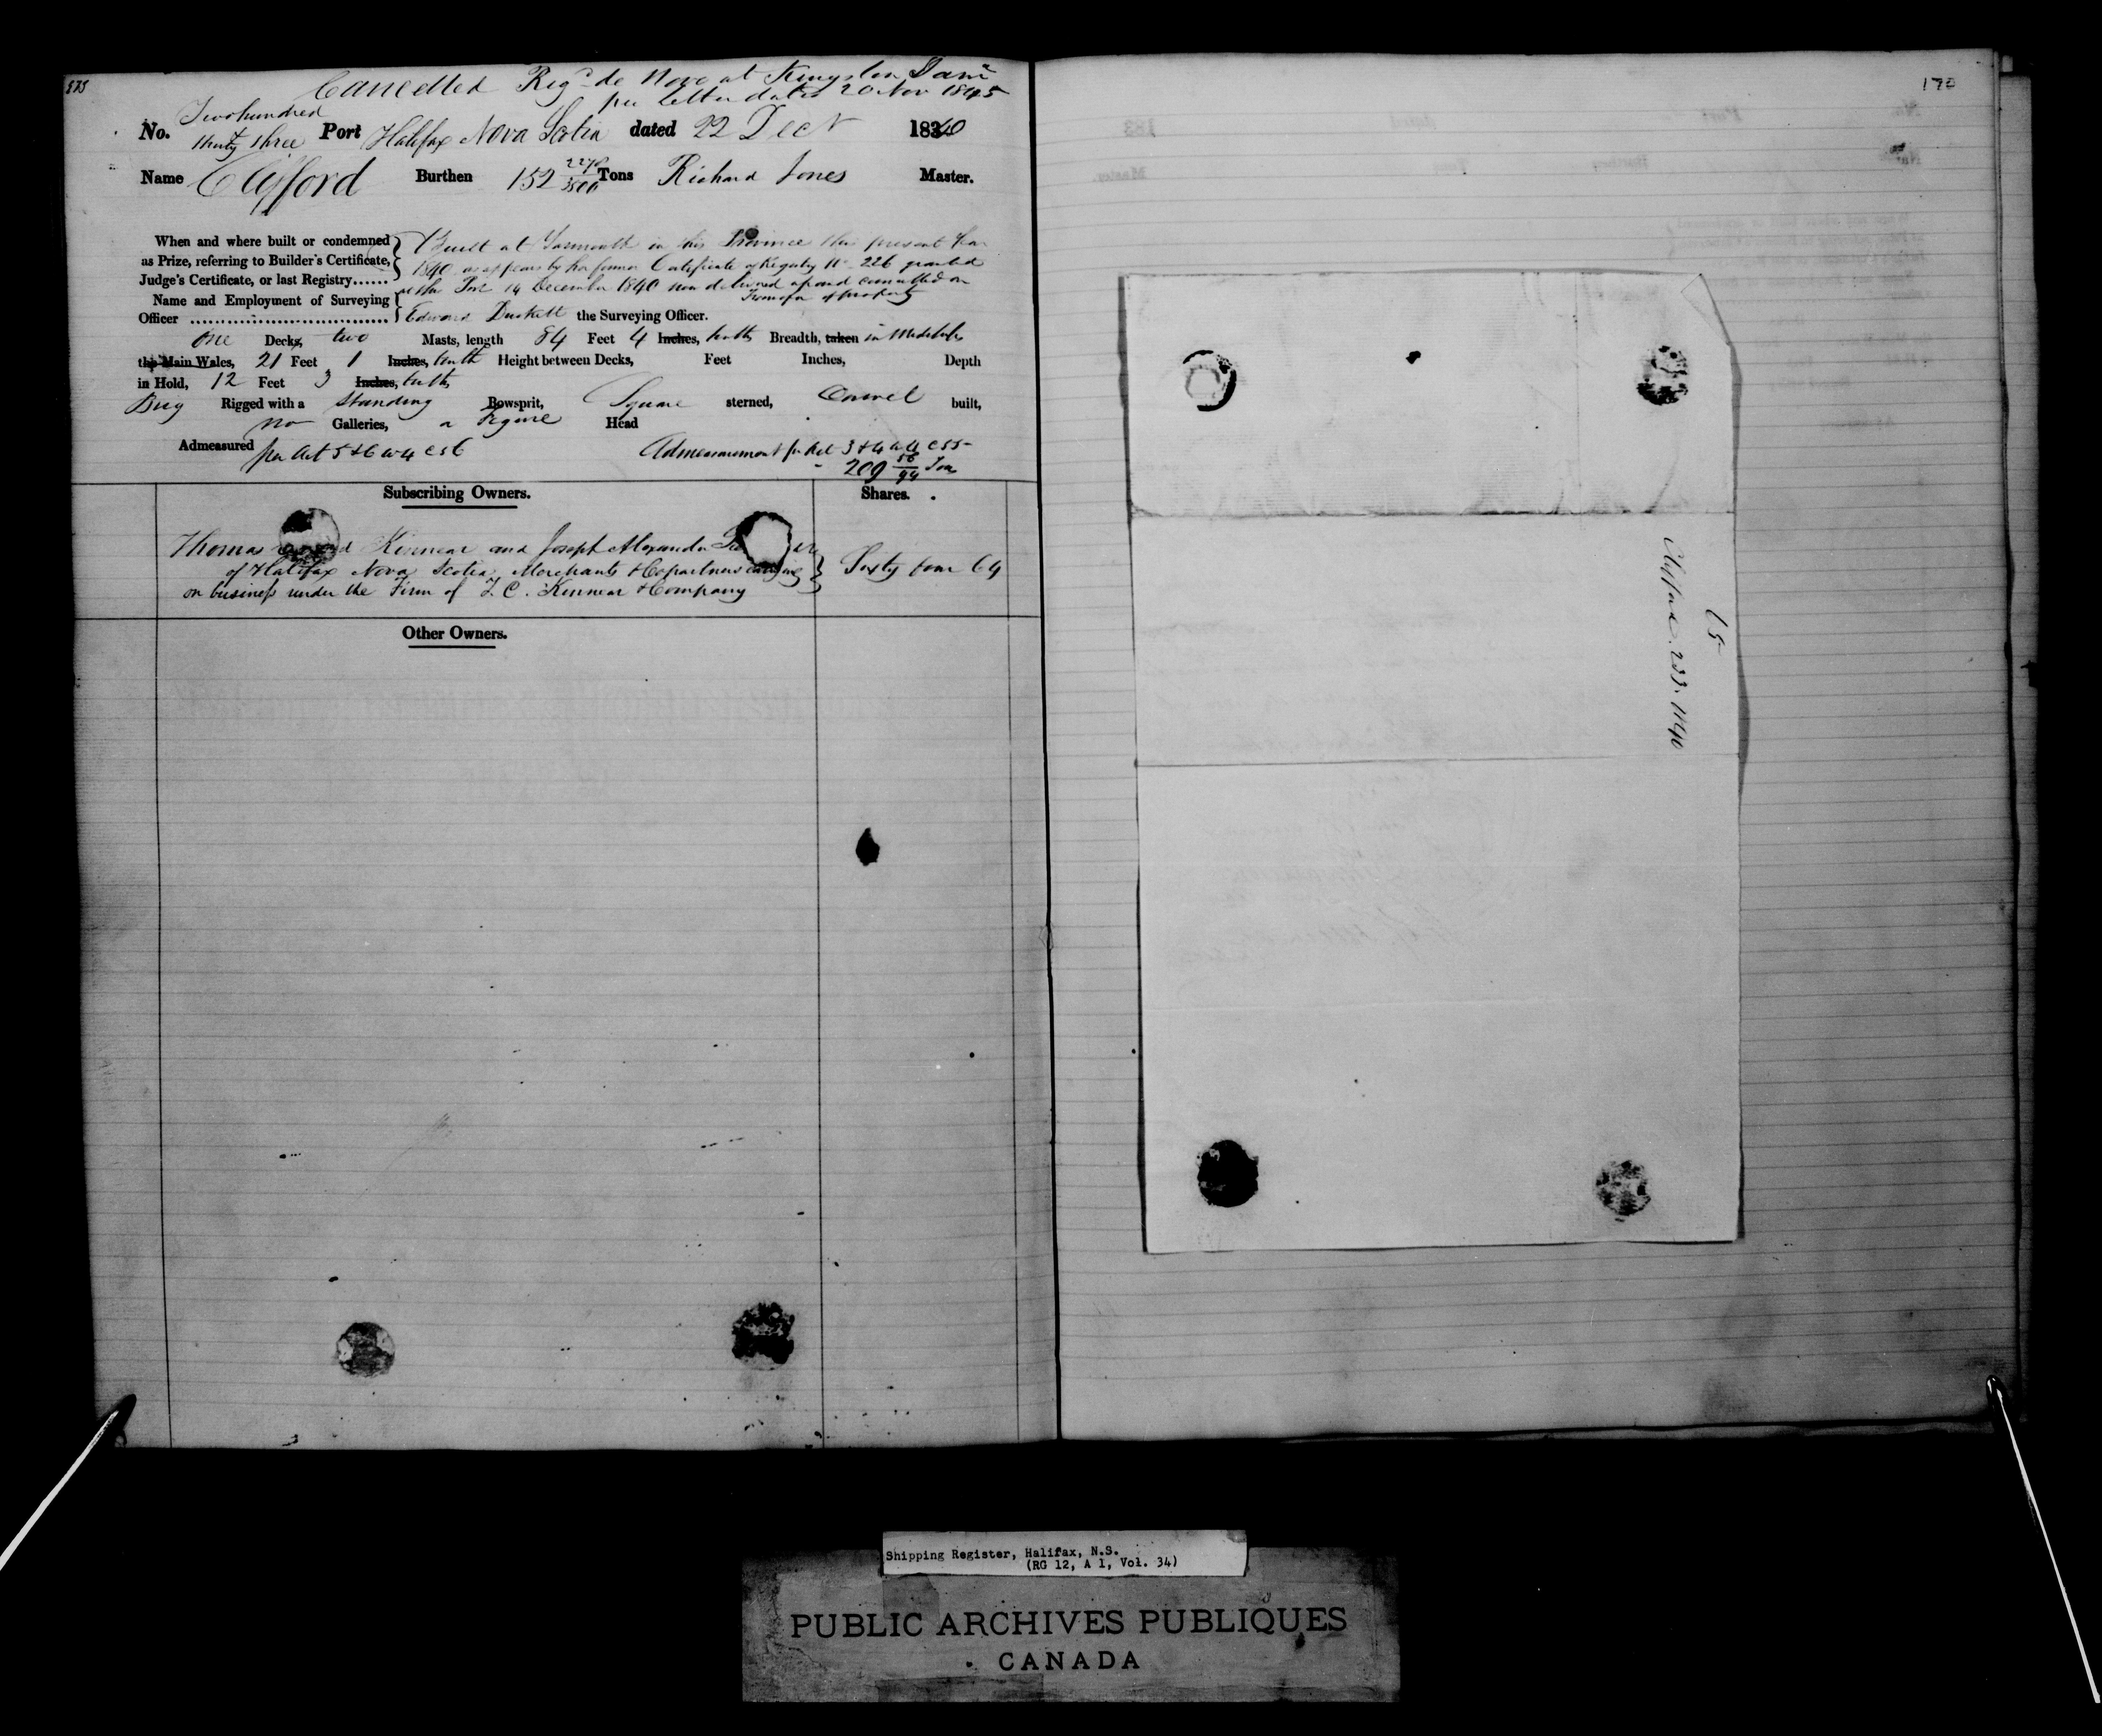 Cancelled Reg.d de Novo at Kingston Jam.a
per letter dated 20 Nov 1845
No. Two hundred thirty three Port Halifax Nova Scotia dated 22 Dec.r 1840
Name Clifford Burthen 152 Tons Richard Jones Master.
When and where built or condemned as Prize, referring to Builder's Certificate, Judge's Certificate, or last Registry......
Built at Yarmouth in this Province this present Year
1840 as appears by her former Certificate of Registry No. 226 granted
at this Port 14 December 1840 now delivered up and cancelled on
Transfer of property
Name and Employment of Surveying Officer
Edward Duckett the Surveying Officer.
One Decks, two Masts, length 84 Feet 4 Inches, tenths Breadth, taken in Midships
the Main Wales, 21 Feet 1 Inches, tenth Height between Decks, Feet Inches, Depth
in Hold, 12 Feet 3 Inches, tenths
Brig Rigged with a Standing Bowsprit, Square sterned, Carvel built,
no Galleries, a Figure Head
Admeasured per Act 5 & 6 W 4 C 56 Admeasurement pr Act 3 & 4 W 4 C 55
209 56/94 Tons
Subscribing Owners. Shares.
Thomas Kinnear and Joseph Alexander
of Halifax Nova Scotia Merchants & Copartners carrying
on business under the Firm of T. C. Kinnear & Company
Sixty four 64
Other Owners.
Clifford. 233. 1840
Shipping Register, Halifax, N.S.
(RG 12, A 1, Vol. 34)
PUBLIC ARCHIVES PUBLIQUES
CANADA